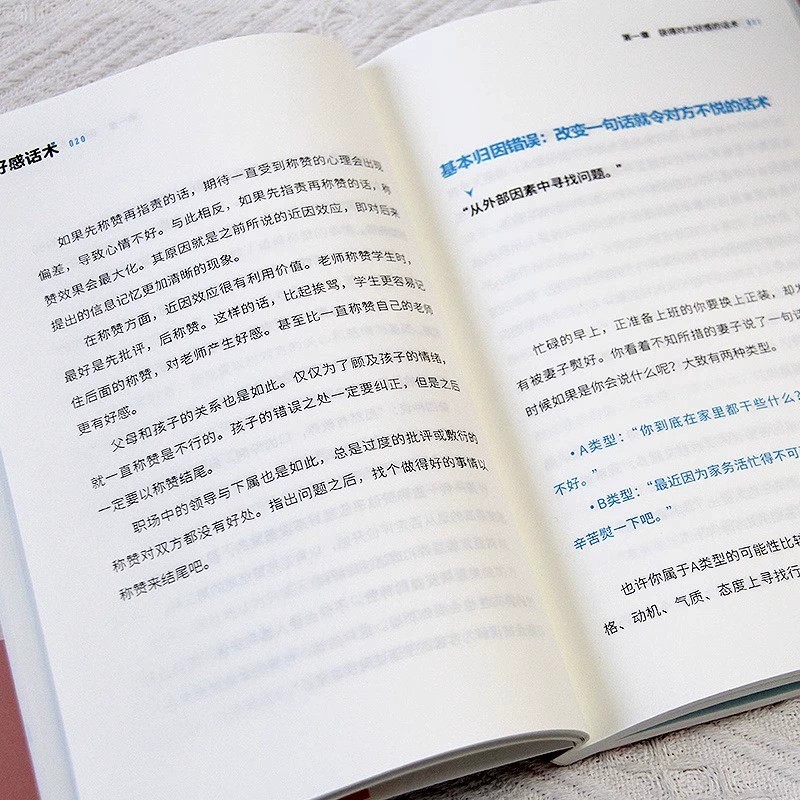 好感话术 020
如果先称赞再指责的话，期待一直受到称赞的心理会出现
偏差，导致心情不好。与此相反，如果先指责再称赞的话，称
赞效果会最大化。其原因就是之前所说的近因效应，即对后来
提出的信息记忆更加清晰的现象。
在称赞方面，近因效应很有利用价值。老师称赞学生时，
最好是先批评，后称赞。这样的话，比起挨骂，学生更容易记
住后面的称赞，对老师产生好感。甚至比一直称赞自己的老师
更有好感。
父母和孩子的关系也是如此。仅仅为了顾及孩子的情绪，
就一直称赞是不行的。孩子的错误之处一定要纠正，但是之后
一定要以称赞结尾。
职场中的领导与下属也是如此，总是过度的批评或敷衍的
称赞对双方都没有好处。指出问题之后，找个做得好的事情以
称赞来结尾吧。
第一章 获得对方好感的话术 021
基本归因错误：改变一句话就令对方不悦的话术
“从外部因素中寻找问题。”
忙碌的早上，正准备上班的你要换上正装，却发
有被妻子熨好。你看着不知所措的妻子说了一句话
时候如果是你会说什么呢？大致有两种类型。
•A类型：“你到底在家里都干些什么？
不好。”
•B类型：“最近因为家务活忙得不可
辛苦熨一下吧。”
也许你属于A类型的可能性比较
格、动机、气质、态度上寻找行